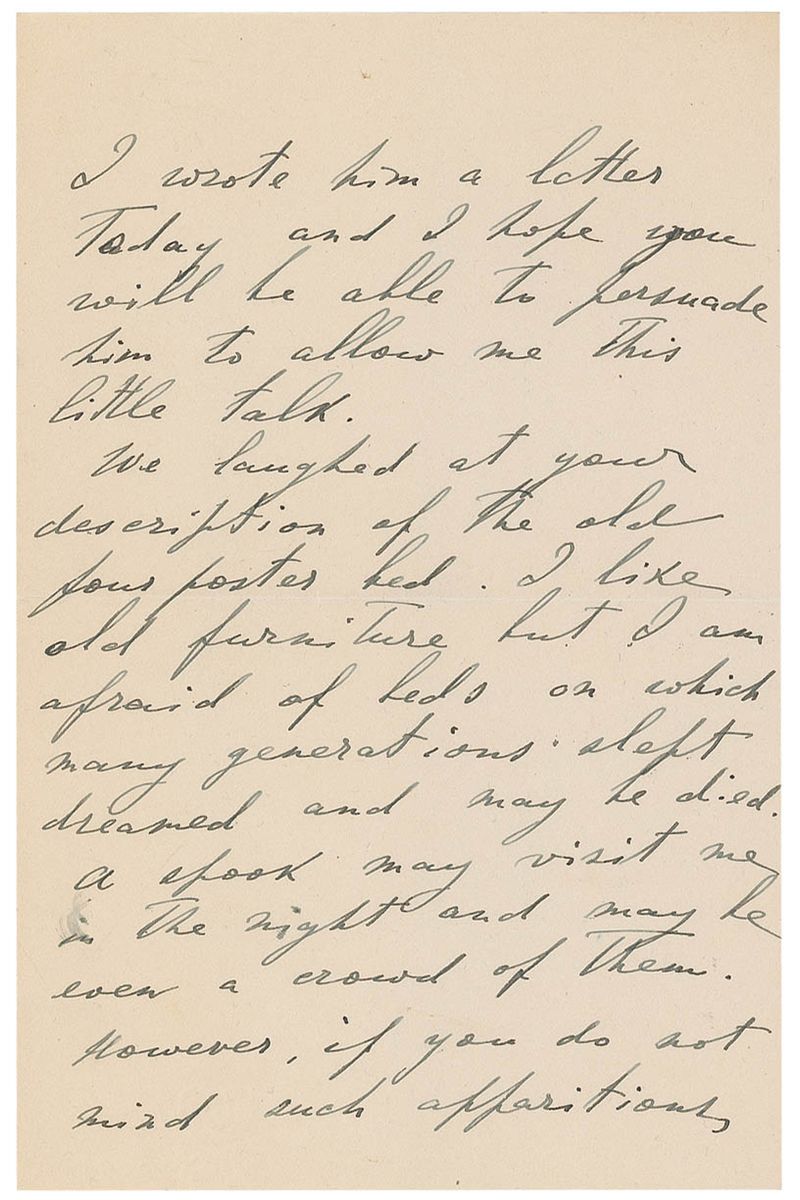 I wrote him a letter
Today and I hope you
will be able to persuade
him to allow me This
little talk.
We laughed at your
description of The old
four poster bed. I like
old furniture but I am
afraid of beds on which
many generations slept
dreamed and may be died.
A spook may visit me
in The night and may be
even a crowd of Them.
However, if you do not
mind such apparitions,